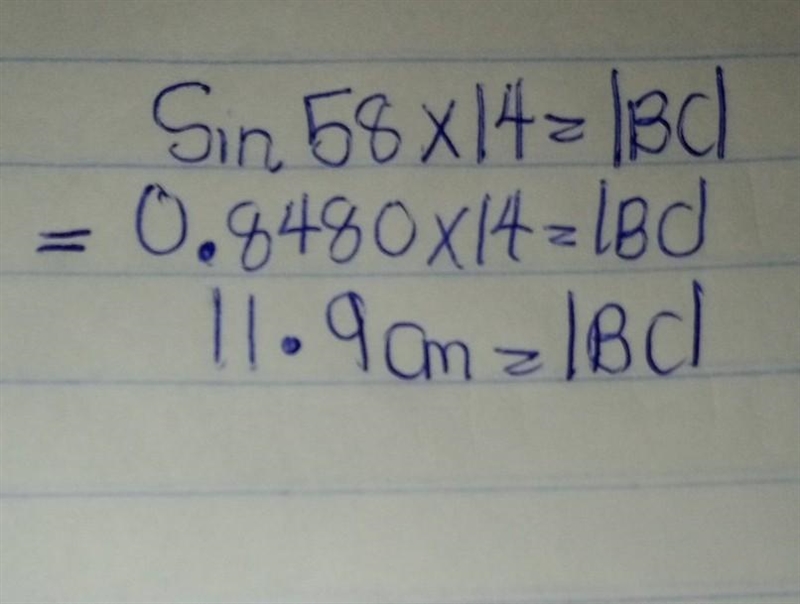 Sin 58 × 14 = |BC|
= 0.8480 × 14 = |BC|
11.9cm = |BC|